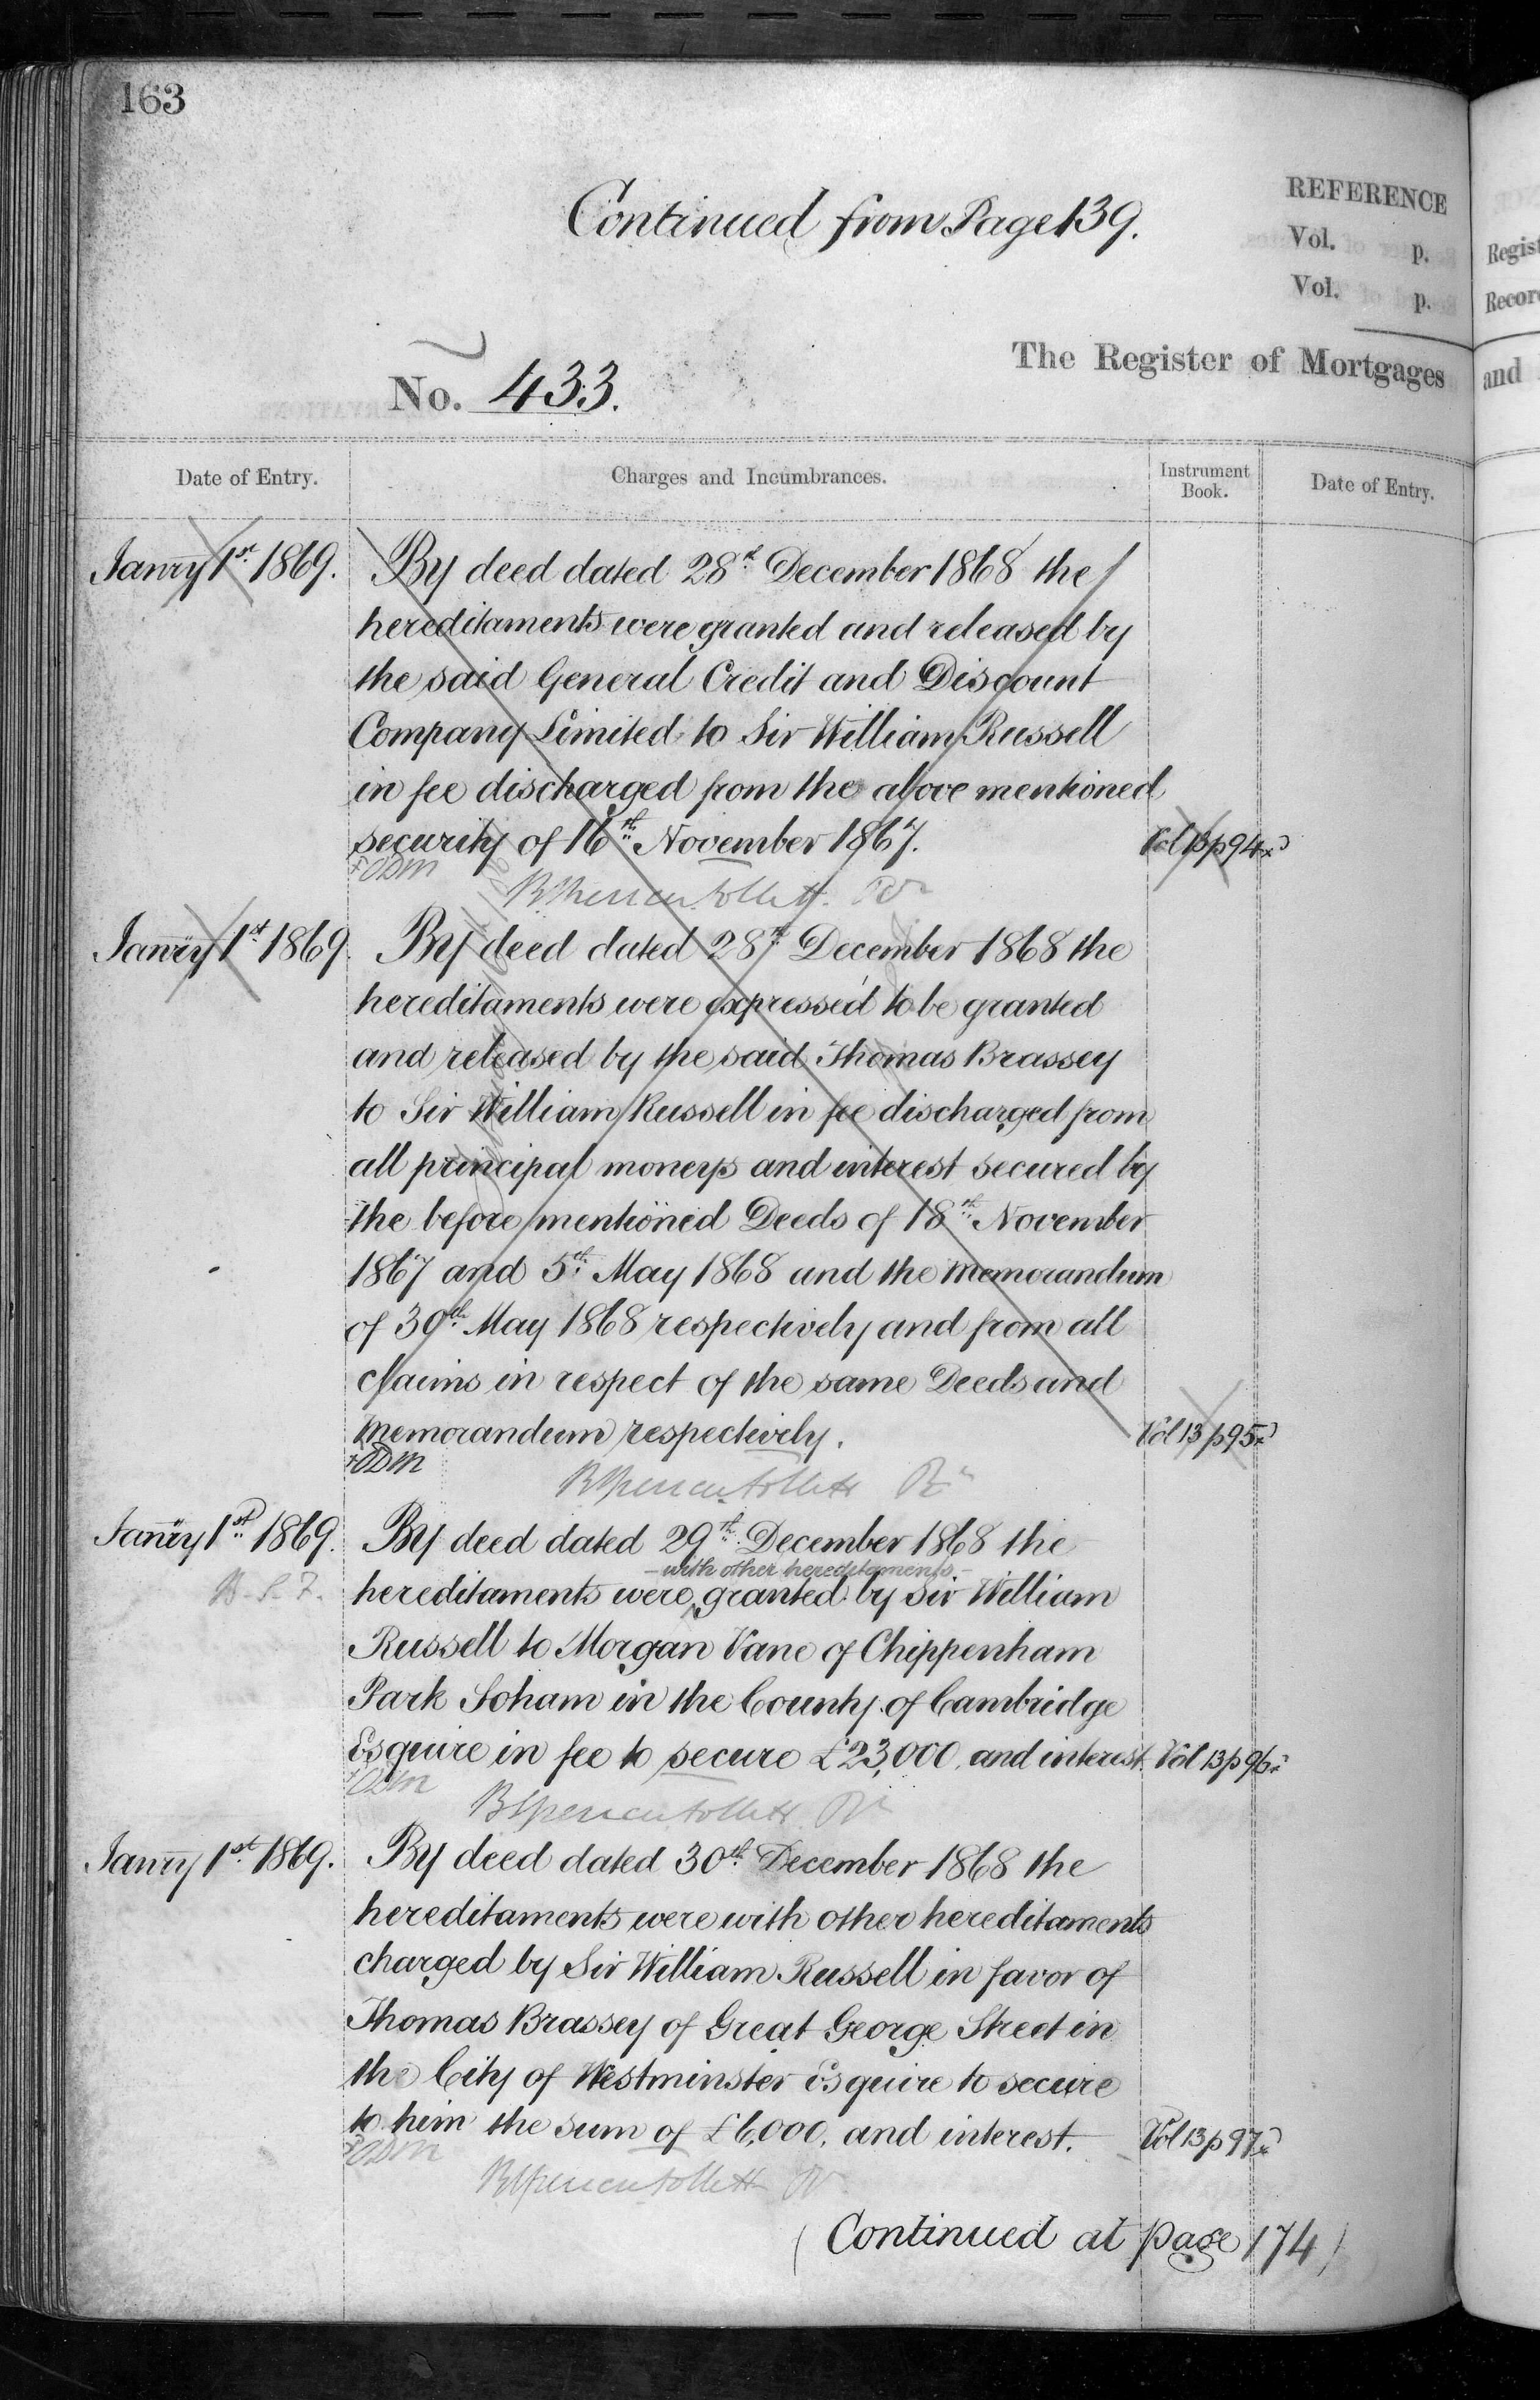 163
Continued from Page 139.
REFERENCE
Vol. p.
Vol. p.
No. 433.
The Register of Mortgages
Date of Entry.
Charges and Incumbrances.
Instrument Book.
Date of Entry.
Regist
Recor
and
Janry 1st 1869. By deed dated 28th December 1868 the
hereditaments were granted and released by
the said General Credit and Discount
Company Limited to Sir William Russell
in fee discharged from the above mentioned
security of 16th November 1867. Vol 13 p 94
ODM
Janry 1st 1869. By deed dated 28th December 1868 the
hereditaments were expressed to be granted
and released by the said Thomas Brassey
to Sir William Russell in fee discharged from
all principal moneys and interest secured by
the before mentioned Deeds of 18th November
1867 and 5th May 1868 and the memorandum
of 30th May 1868 respectively and from all
claims in respect of the same Deeds and
memorandum respectively. Vol 13 p 95
ODM
Janry 1st 1869. By deed dated 29th December 1868 the
- with other hereditaments -
hereditaments were granted by Sir William
Russell to Morgan Vane of Chippenham
Park Soham in the County of Cambridge
Esquire in fee to secure £23,000, and interest. Vol 13 p 96
ODM
Janry 1st 1869. By deed dated 30th December 1868 the
hereditaments were with other hereditaments
charged by Sir William Russell in favor of
Thomas Brassey of Great George Street in
the City of Westminster Esquire to secure
to him the sum of £6,000, and interest. Vol 13 p 97
ODM
(Continued at page 174)